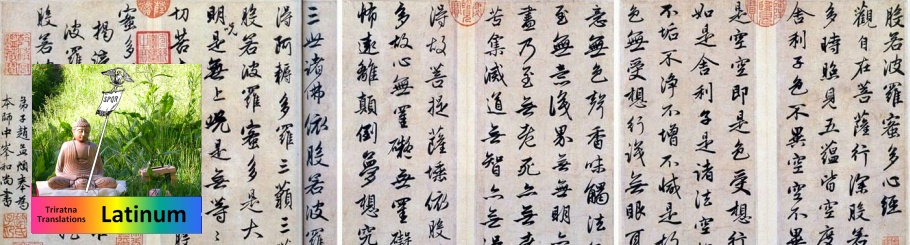 般若波羅蜜多心經
觀自在菩薩行深般
多時照見五蘊皆空度
舍利子色不異空空不
是空空即是色受想行
如是舍利子是諸法空
不垢不淨不增不減是
色無受想行識無眼
意無色聲香味觸法
至無意識界無無明
盡乃至無老死亦無
苦集滅道無智亦無
得故菩提薩埵依般
多故心無罣礙無罣礙
怖遠離顛倒夢想究
三世諸佛依般若波羅
得阿耨多羅三藐三
般若波羅蜜多是大
明咒是無上咒是無等
切苦
蜜多
揭諦
波羅
般若
弟子趙孟頫奉為
本師中峯和尚書
SPQR
Triratna
Translations
Latinum